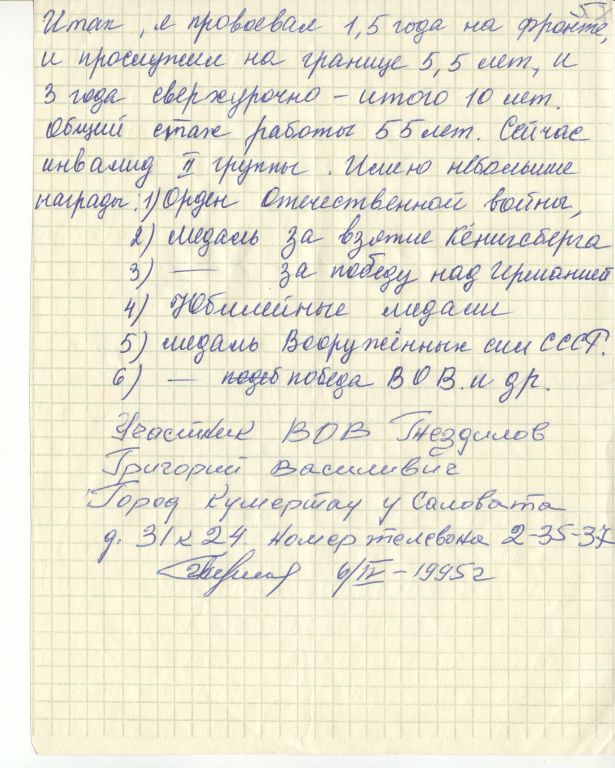 Итак, я провоевал 1,5 года на фронте,
и прослужил на границе 5,5 лет, и
3 года сверхурочно – итого 10 лет.
Общий стаж работы 55 лет. Сейчас
инвалид II группы. Имею небольшие
награды: 1) Орден Отечественной войны,
2) медаль за взятие Кёнигсберга
3) — за победу над Германией
4) Юбилейные медали
5) медаль Вооружённых сил СССР.
6) — победа ВОВ. и др.
Участник ВОВ Гнездилов
Григорий Василивич
Город Кумертау у Саловата
д. 31 к 24 номер телевона 2-35-37
6/IV – 1995г